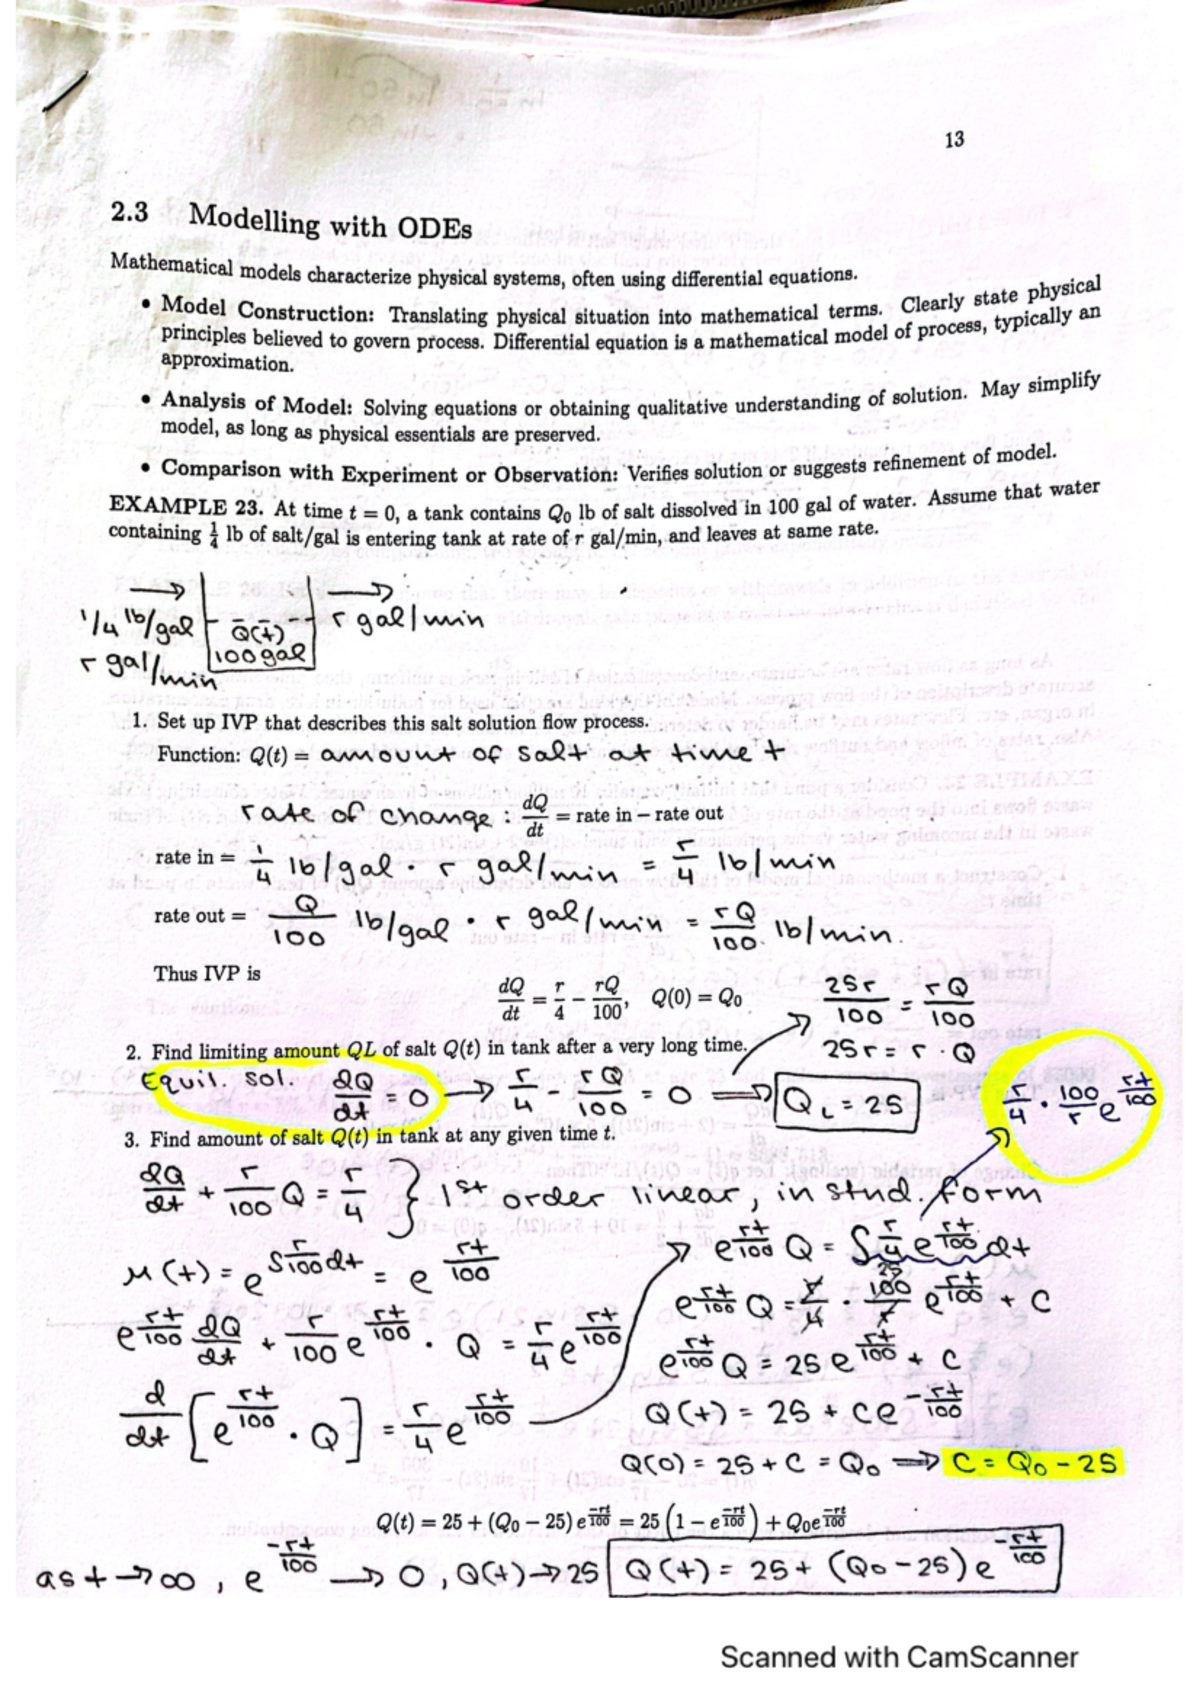 13
2.3 Modelling with ODEs
Mathematical models characterize physical systems, often using differential equations.
• Model Construction: Translating physical situation into mathematical terms. Clearly state physical
principles believed to govern process. Differential equation is a mathematical model of process, typically an
approximation.
• Analysis of Model: Solving equations or obtaining qualitative understanding of solution. May simplify
model, as long as physical essentials are preserved.
• Comparison with Experiment or Observation: Verifies solution or suggests refinement of model.
EXAMPLE 23. At time t = 0, a tank contains Q₀ lb of salt dissolved in 100 gal of water. Assume that water
containing 1/4 lb of salt/gal is entering tank at rate of r gal/min, and leaves at same rate.
→ →
1/4 lb/gal Q(t) r gal/min
r gal/min 100 gal
1. Set up IVP that describes this salt solution flow process.
Function: Q(t) = amount of salt at time t
rate of change: dQ/dt = rate in − rate out
rate in = 1/4 lb/gal · r gal/min = r/4 lb/min
rate out = Q/100 lb/gal · r gal/min = rQ/100 lb/min.
Thus IVP is
dQ/dt = r/4 − rQ/100, Q(0) = Q₀
25r/100 = rQ/100
25r = r · Q
2. Find limiting amount QL of salt Q(t) in tank after a very long time.
Equil. sol. dQ/dt = 0 → r/4 − rQ/100 = 0 ⇒ Q_L = 25
r/4 · 100/r e^(rt/100)
3. Find amount of salt Q(t) in tank at any given time t.
dQ/dt + r/100 Q = r/4 } 1st order linear, in stnd. form
μ(t) = e^(∫r/100 dt) = e^(rt/100)
e^(rt/100) dQ/dt + r/100 e^(rt/100) · Q = r/4 e^(rt/100)
d/dt [e^(rt/100) · Q] = r/4 e^(rt/100)
→ e^(rt/100) Q = ∫ r/4 e^(rt/100) dt
e^(rt/100) Q = r/4 · 100/r e^(rt/100) + C
25
e^(rt/100) Q = 25e^(rt/100) + C
Q(t) = 25 + Ce^(−rt/100)
Q(0) = 25 + C = Q₀ ⇒ C = Q₀ − 25
Q(t) = 25 + (Q₀ − 25) e^(−rt/100) = 25 (1 − e^(−rt/100)) + Q₀e^(−rt/100)
as t → ∞, e^(−rt/100) → 0, Q(t) → 25
Q(t) = 25 + (Q₀ − 25)e^(−rt/100)
Scanned with CamScanner